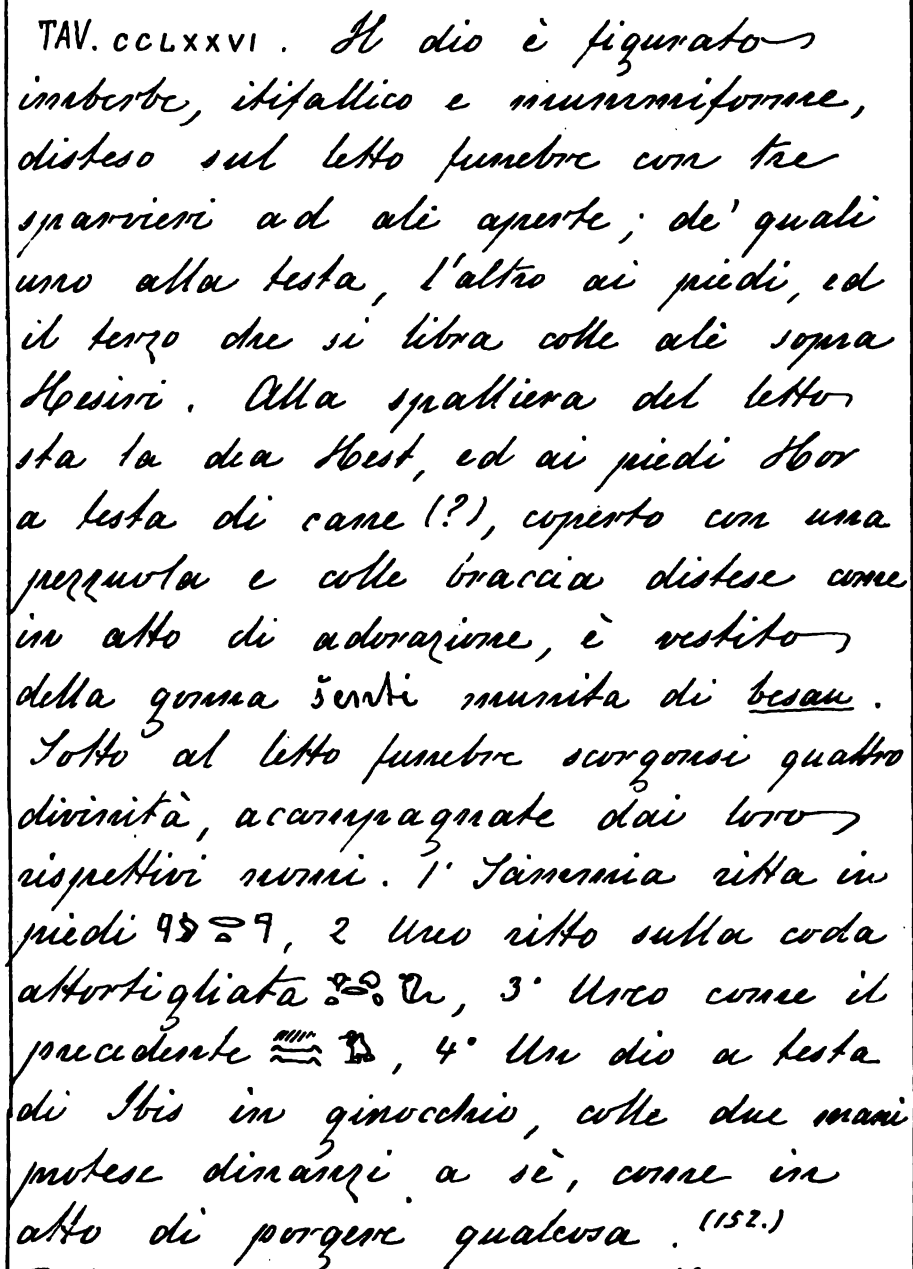 TAV. CCLXXVI. Il dio è figurato
imberbe, itifallico e mummiforme,
disteso sul letto funebre con tre
sparvieri ad ali aperte; de' quali
uno alla testa, l'altro ai piedi, ed
il terzo che si libra colle ali sopra
Hesiri. Alla spalliera del letto
sta la dea Hest, ed ai piedi Hor
a testa di cane (?), coperto con una
pezzuola e colle braccia distese come
in atto di adorazione, è vestito
della gonna šenti munita di besau.
Sotto al letto funebre scorgonsi quattro
divinità, acompagnate dai loro
rispettivi nomi. 1° Scimmia ritta in
piedi, 2 Ureo ritto sulla coda
attortigliata, 3° Ureo come il
precedente, 4° Un dio a testa
di Ibis in ginocchio, colle due mani
protese dinanzi a sè, come in
atto di porgere qualcosa. (152.)